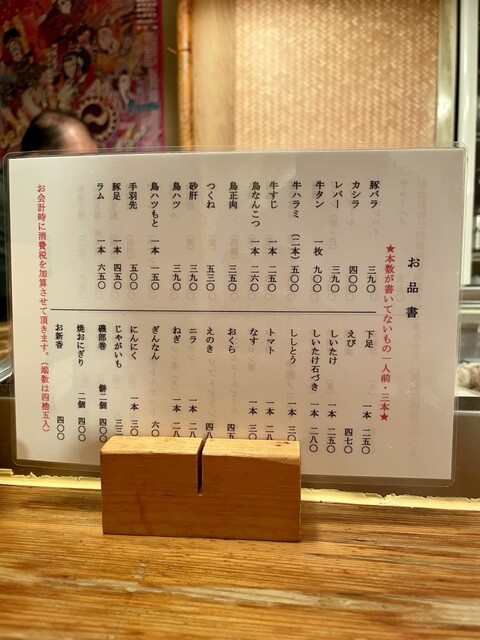 お品書
★本数が書いてないもの一人前・三本★
豚バラ 三九〇
カシラ 四〇〇
レバー 三九〇
牛タン 一枚 九〇〇
牛ハラミ (二本) 五〇〇
牛すじ 一本 二五〇
鳥なんこつ 一本 二六〇
鳥正肉 三五〇
つくね 五三〇
砂肝 三九〇
鳥ハツ 三九〇
鳥ハツもと 一本 一五〇
手羽先 五〇〇
豚足 一本 四五〇
ラム 一本 六五〇
下足 一本 二五〇
えび 四七〇
しいたけ 一本 二五〇
しいたけ石づき 一本 二八〇
ししとう 一本 三〇
トマト 一本 二八
なす 一本 三〇
おくら 四五
えのき 四八
ニラ 一本 二八
ねぎ 一本 二八
ぎんなん 六〇
にんにく 一本 三〇
じゃがいも
磯部巻 餅二個 四〇〇
焼おにぎり 二個 四〇〇
お新香 四〇〇
お会計時に消費税を加算させて頂きます。(端数は四捨五入)